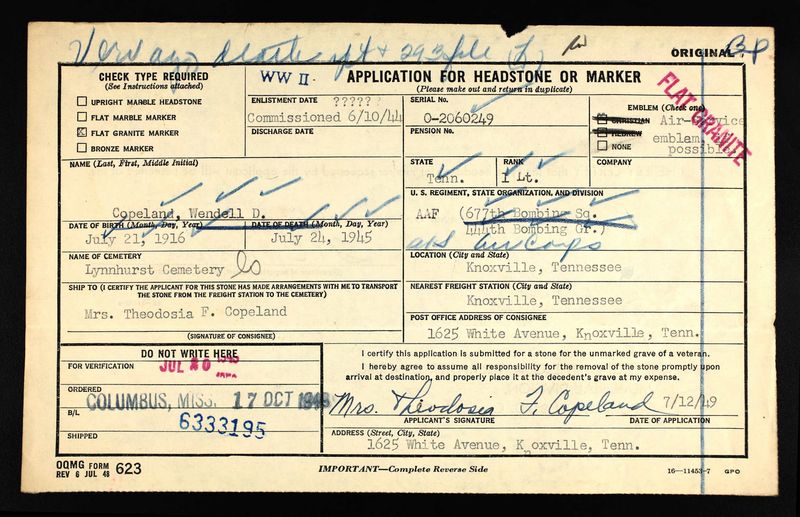 ORIGINAL
CHECK TYPE REQUIRED
(See Instructions attached)
UPRIGHT MARBLE HEADSTONE
FLAT MARBLE MARKER
FLAT GRANITE MARKER
BRONZE MARKER
WW II.
APPLICATION FOR HEADSTONE OR MARKER
(Please make out and return in duplicate)
ENLISTMENT DATE ?????
Commissioned 6/10/44
DISCHARGE DATE
SERIAL No.
O-2060249
PENSION No.
EMBLEM (Check one)
CHRISTIAN
HEBREW
NONE
Air-Service
emblem
possible
FLAT GRANITE
NAME (Last, First, Middle Initial)
Copeland, Wendell D.
STATE
Tenn.
RANK
1 Lt.
COMPANY
U. S. REGIMENT, STATE ORGANIZATION, AND DIVISION
AAF (677th Bombing Sq.
444th Bombing Gr.)
Air Corps
DATE OF BIRTH (Month, Day, Year)
July 21, 1916
DATE OF DEATH (Month, Day, Year)
July 24, 1945
NAME OF CEMETERY
Lynnhurst Cemetery
LOCATION (City and State)
Knoxville, Tennessee
SHIP TO (I CERTIFY THE APPLICANT FOR THIS STONE HAS MADE ARRANGEMENTS WITH ME TO TRANSPORT
THE STONE FROM THE FREIGHT STATION TO THE CEMETERY)
Mrs. Theodosia F. Copeland
(SIGNATURE OF CONSIGNEE)
NEAREST FREIGHT STATION (City and State)
Knoxville, Tennessee
POST OFFICE ADDRESS OF CONSIGNEE
1625 White Avenue, Knoxville, Tenn.
DO NOT WRITE HERE
FOR VERIFICATION
JUL 20
ORDERED
COLUMBUS, MISS. 17 OCT 1949
B/L
6333195
SHIPPED
I certify this application is submitted for a stone for the unmarked grave of a veteran.
I hereby agree to assume all responsibility for the removal of the stone promptly upon
arrival at destination, and properly place it at the decedent's grave at my expense.
Mrs. Theodosia F. Copeland 7/12/49
APPLICANT'S SIGNATURE
DATE OF APPLICATION
ADDRESS (Street, City, State)
1625 White Avenue, Knoxville, Tenn.
OQMG FORM 623
REV 6 JUL 48
IMPORTANT—Complete Reverse Side
16—11453-7 GPO